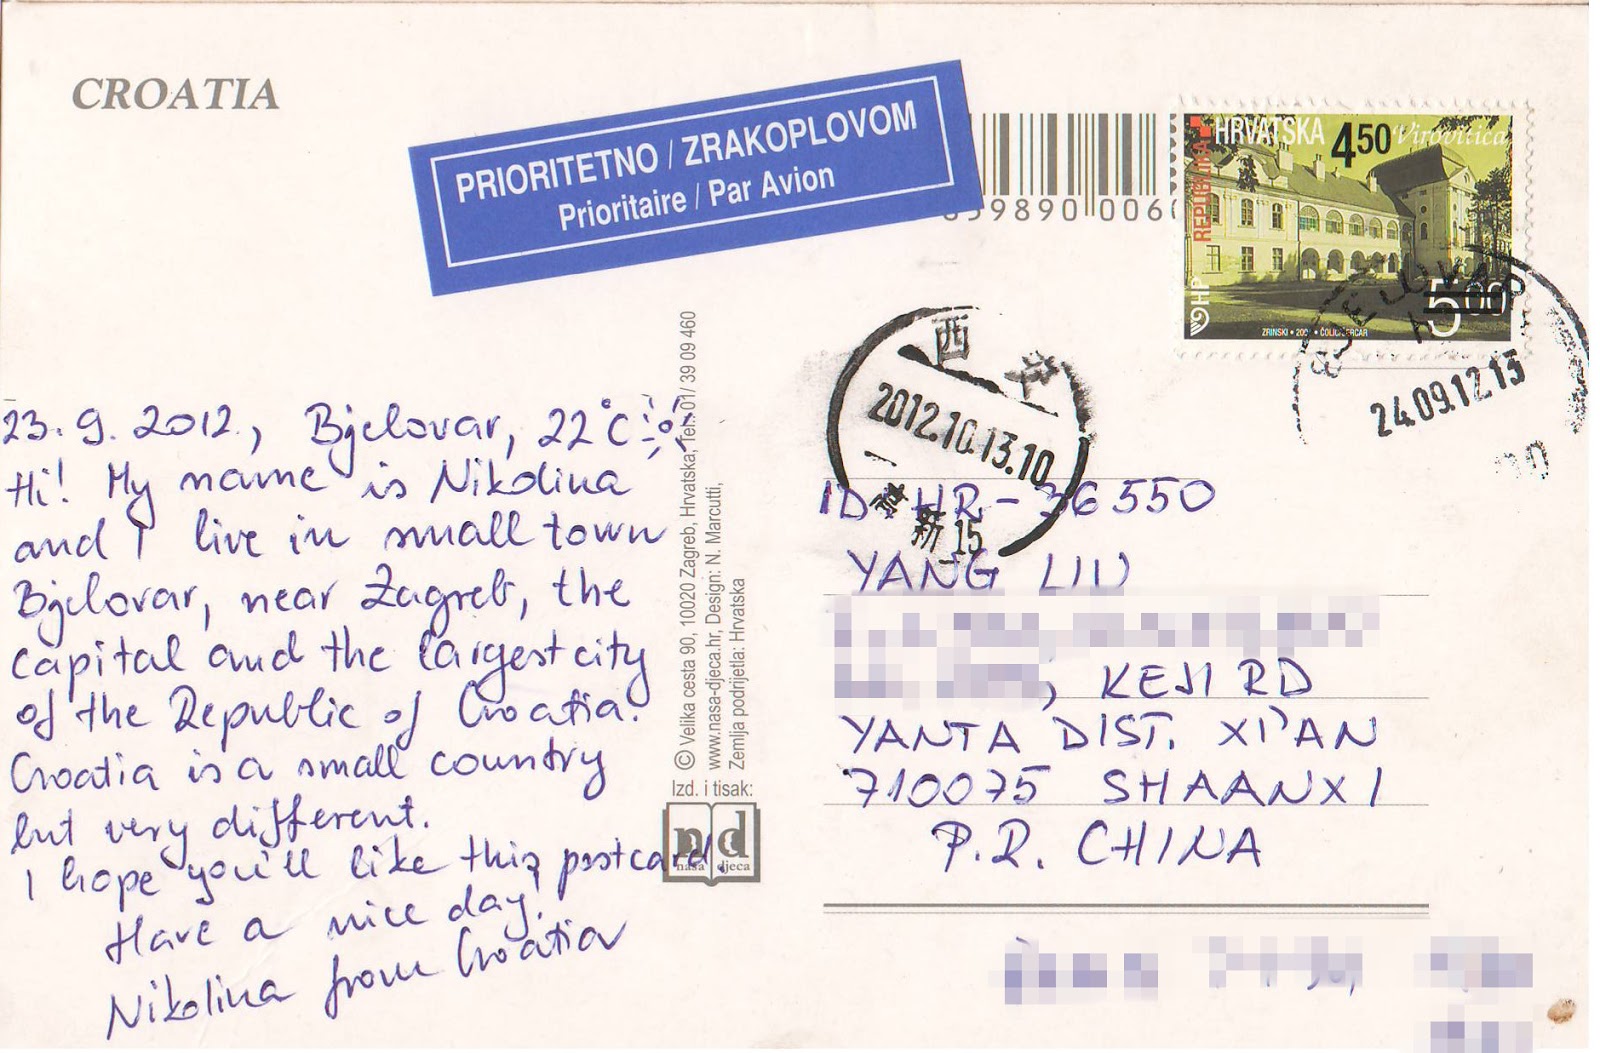 CROATIA
PRIORITETNO / ZRAKOPLOVOM
Prioritaire / Par Avion
59890 006
REPUBLIKA
HRVATSKA
4.50
Virovitica
HP
5.00
ZRINSKI
24.09.12.13
西
2012.10.13.10
新 15
23.9.2012., Bjelovar, 22°C
Hi! My name is Nikolina
and I live in small town
Bjelovar, near Zagreb, the
capital and the largest city
of the Republic of Croatia.
Croatia is a small country
but very different.
I hope you'll like this postcard.
Have a nice day.
Nikolina from Croatia
Izd. i tisak:
© Velika cesta 90, 10020 Zagreb, Hrvatska, Tel: 01/ 39 09 460
www.nasa-djeca.hr, Design: N. Marcutti,
Zemlja podrijetla: Hrvatska
nd
naša djeca
ID HR-36550
YANG LIU
, KEJI RD
YANTA DIST. XI'AN
710075 SHAANXI
P.R. CHINA